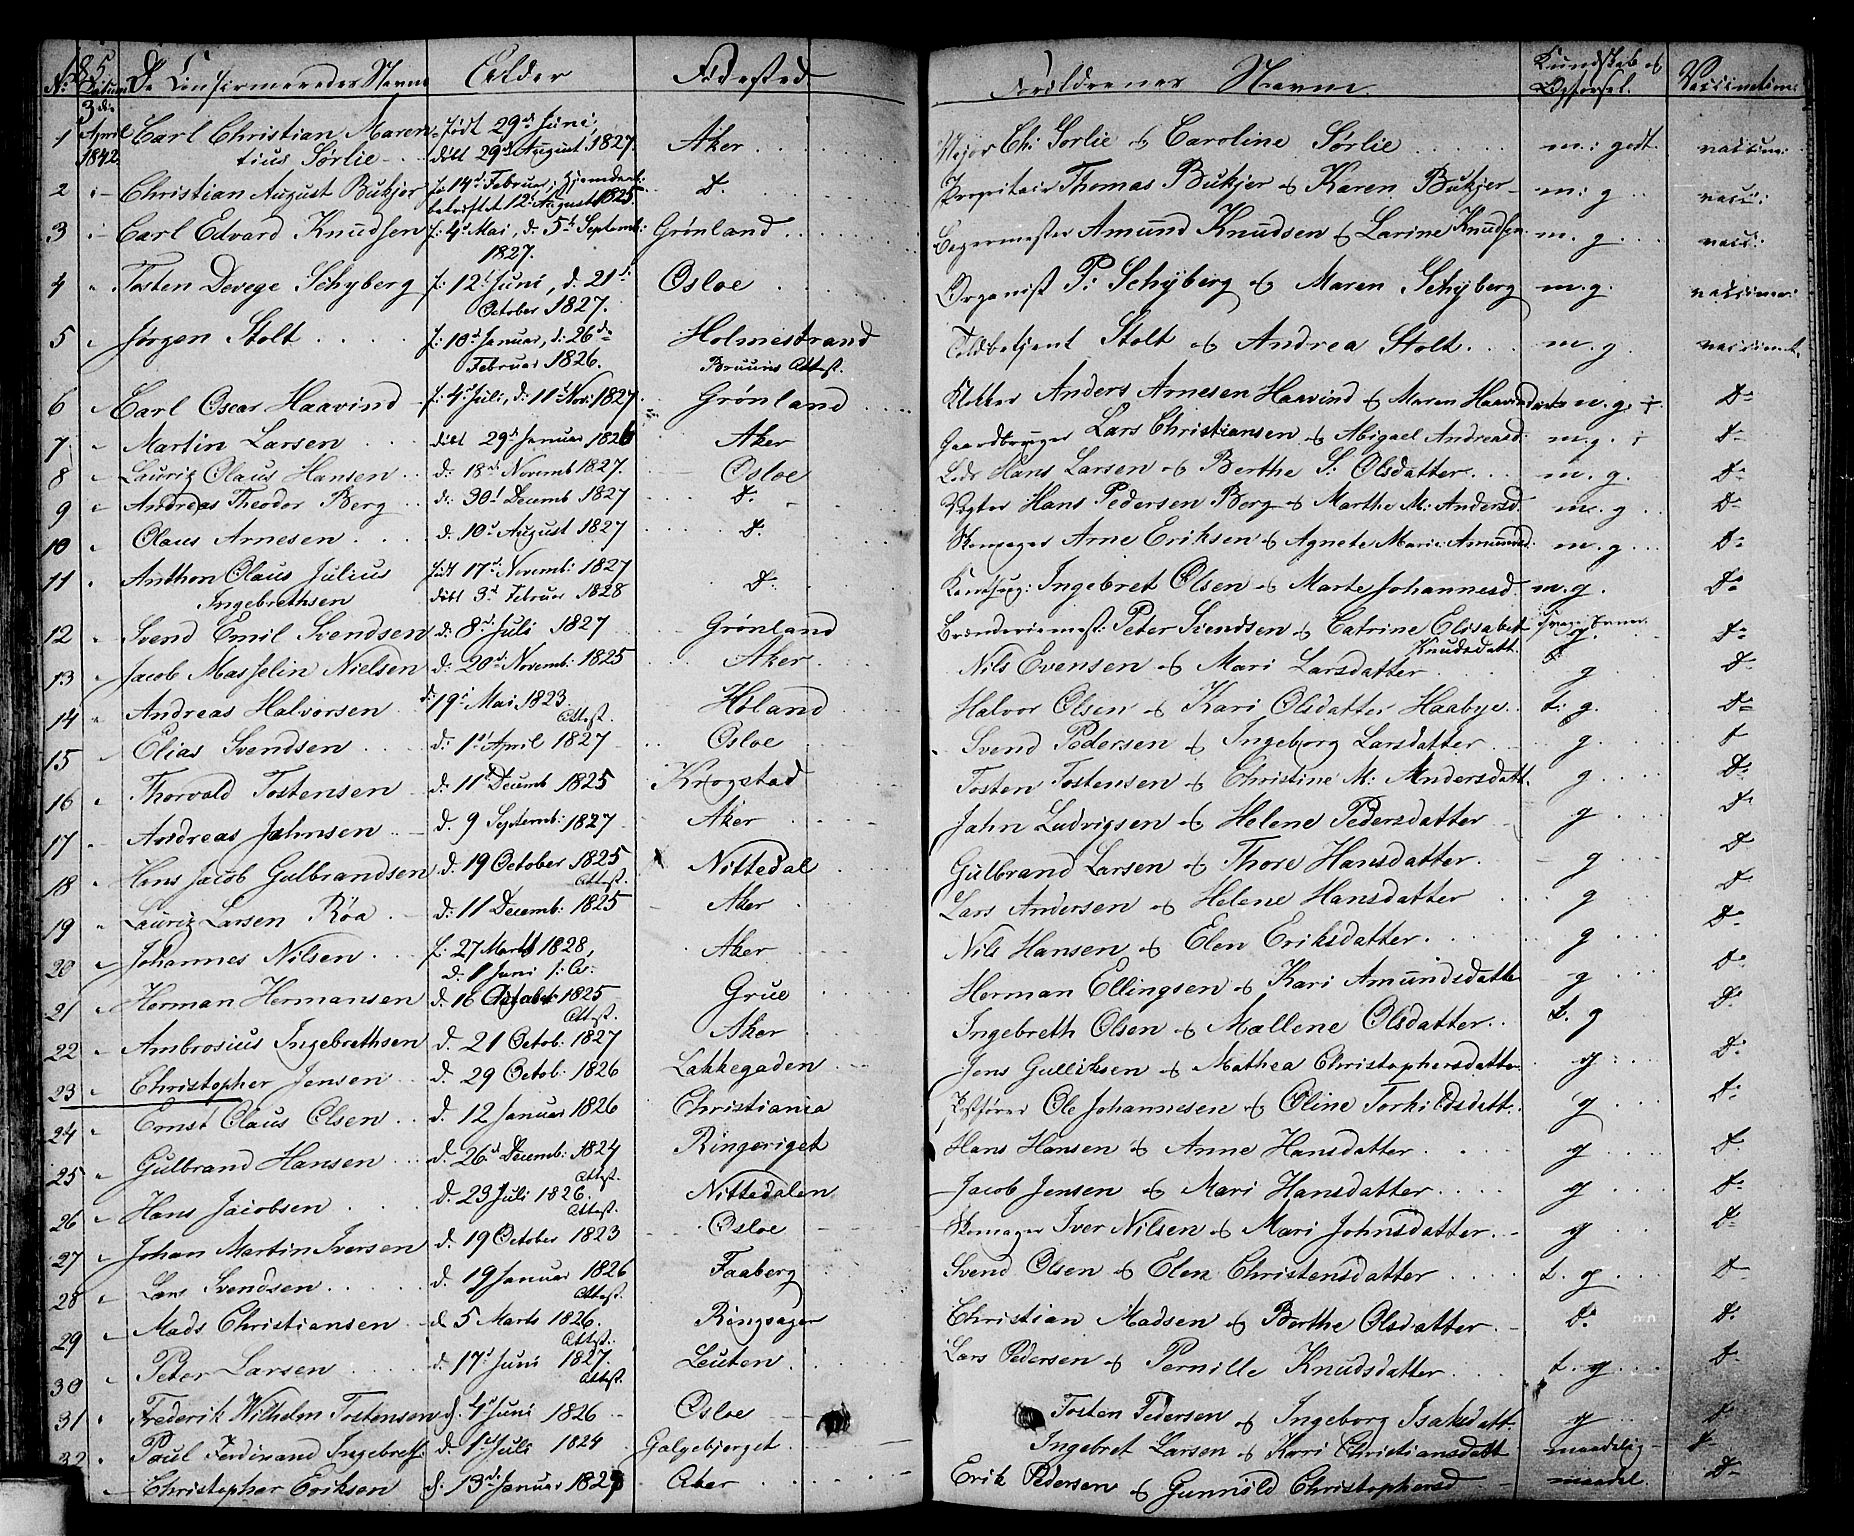 185.
No Datum De Confirmeredes Navne Alder Fødested Forældrenes Navne Kundskab og Opførsel. Vaccination.
1 3die April 1842 Carl Christian Maren- født 29d Juni, Major Ch: Sørlie & Caroline Sørlie m: godt vaccine:
tius Sørlie døbt 29d August 1827 Aker
2 Christian August Bukjer f. 14d Februar, hjemdøbt Do Proprietair Thomas Bukjer & Karen Bukjer m: g vacc:
bekræftet 12 August 1825
3 Carl Edvard Knudsen f: 4d Mai, d. 5d Septemb: Grønland Bagermester Amund Knudsen & Larine Knudsen m. g. vacc:
1827.
4 Tosten Devege Schyberg f: 12d Juni, d. 21d Osloe Organist P: Schyberg & Maren Schyberg m.g. vaccine:
October 1827.
5 Jørgen Stolt f: 10d Januar, d: 26de Holmestrand Toldbetjent Stolt & Andrea Stolt m.g. vaccinert
Februar 1826. Bruuns Attest.
6 Carl Oscar Haavind f: 4d Juli, d: 11d Nov: 1827 Grønland Klokker Anders Arnesen Haavind & Maren Haavind m.g. Do
7 Martin Larsen døbt 29d Januar 1826 Aker Gaardbruger Lars Christiansen & Abigael Andreasd. m.g. Do
8 Lauriz Olaus Hansen d: 18d Novemb 1827. Osloe Hans Larsen & Berthe S: Olsdatter m. g. Do
9 Andreas Theodor Berg d: 30d Decemb 1827 Do Vægter Hans Pedersen Berg & Marthe M: Andersd. m. g Do
10 Olaus Arnesen d: 10d August 1827 Do Skomager Arne Eriksen & Agnete Marie Amundsd: m. g Do
11 Anthon Olaus Julius født 17d Novemb: 1827 Do Ingebret Olsen & Marte Johannesd. m. g. Do
Ingebrethsen døbt 3d Februar 1828
12 Svend Emil Svendsen d: 8d Juli 1827 Grønland Brænderiemest: Peter Svendsen & Catrine Elisabet g. Do
Knudsdatt.
13 Jacob Masselin Nielsen d: 20d Novemb: 1825 Aker Nils Evensen & Mari Larsdatter g Do
14 Andreas Halvorsen d: 19d Mai 1823. Høland Halvor Olsen & Kari Olsdatter Haabye t. g. Do
Attest.
15 Elias Svendsen d: 1d April 1827 Osloe Svend Pedersen & Ingeborg Larsdatter g. Do
16 Thorvald Tostensen d: 11d Decemb 1825 Krogstad Tosten Tostensen & Christine M: Andersdatt. g Do
17 Andreas Jahnsen d. 9 Septemb: 1827 Aker Jahn Ludvigsen & Helene Pedersdatter g Do
18 Hans Jacob Gulbrandsen d. 19 October 1825 Nittedal Gulbrand Larsen & Thore Hansdatter. g Do
Attest.
19 Lauriz Larsen Røa d: 11 Decemb: 1825 Aker Lars Andersen & Helene Hansdatter g Do
20 Johannes Nilsen f: 27 Marts 1828, Aker Nils Hansen & Elen Eriksdatter g Do
d. 1 Juni s: A:
21 Herman Hermansen d. 16 October 1825 Grue Herman Ellingsen & Kari Amundsdatter g Do
Attest.
22 Ambrosius Ingebrethsen d. 21 Octob: 1827 Aker Ingebreth Olsen & Mallene Olsdatter t. g Do
23 Christopher Jensen d. 29 Octob: 1826 Lakkegaden Jens Gulliksen & Mathea Christophersdatter g Do
24 Ernst Olaus Olsen d. 12 Januar 1826 Christiania Postfører Ole Johannesen & Oline Torkildsdatt. g Do
25 Gulbrand Hansen d. 26d Decemb: 1824 Ringeriget Hans Hansen & Anne Hansdatter g Do
Attest.
26 Hans Jacobsen d. 23 Juli 1826. Nittedalen Jacob Jensen & Mari Hansdatter g Do
Attest.
27 Johan Martin Iversen d. 19 October 1823 Osloe Skomager Iver Nilsen & Mari Johnsdatter g Do
28 Lars Svendsen d. 19 Januar 1826 Faaberg Svend Olsen & Elen Christensdatter t. g Do
Attest.
29 Mads Christiansen d 5 Marts 1826. Ringsager Christian Madsen & Berthe Olsdatter Do Do
Attest.
30 Peter Larsen d: 17d Juni 1827. Leuten Lars Pedersen & Pernille Knudsdatter t. g Do
Attest.
31 Frederik Wilhelm Tostensen d. 4d Juni 1826 Osloe Tosten Pedersen & Ingeborg Isaksdatt. g Do
32 Paul Ferdinand Ingebreths: d. 1d Juli 1824 Galgebjerget Ingebret Larsen & Kari Christiansdatt maadelig Do
Christopher Eriksen d: 13de Januar 1825 Aker Erik Pedersen & Gunnild Christophersd maadel. Do